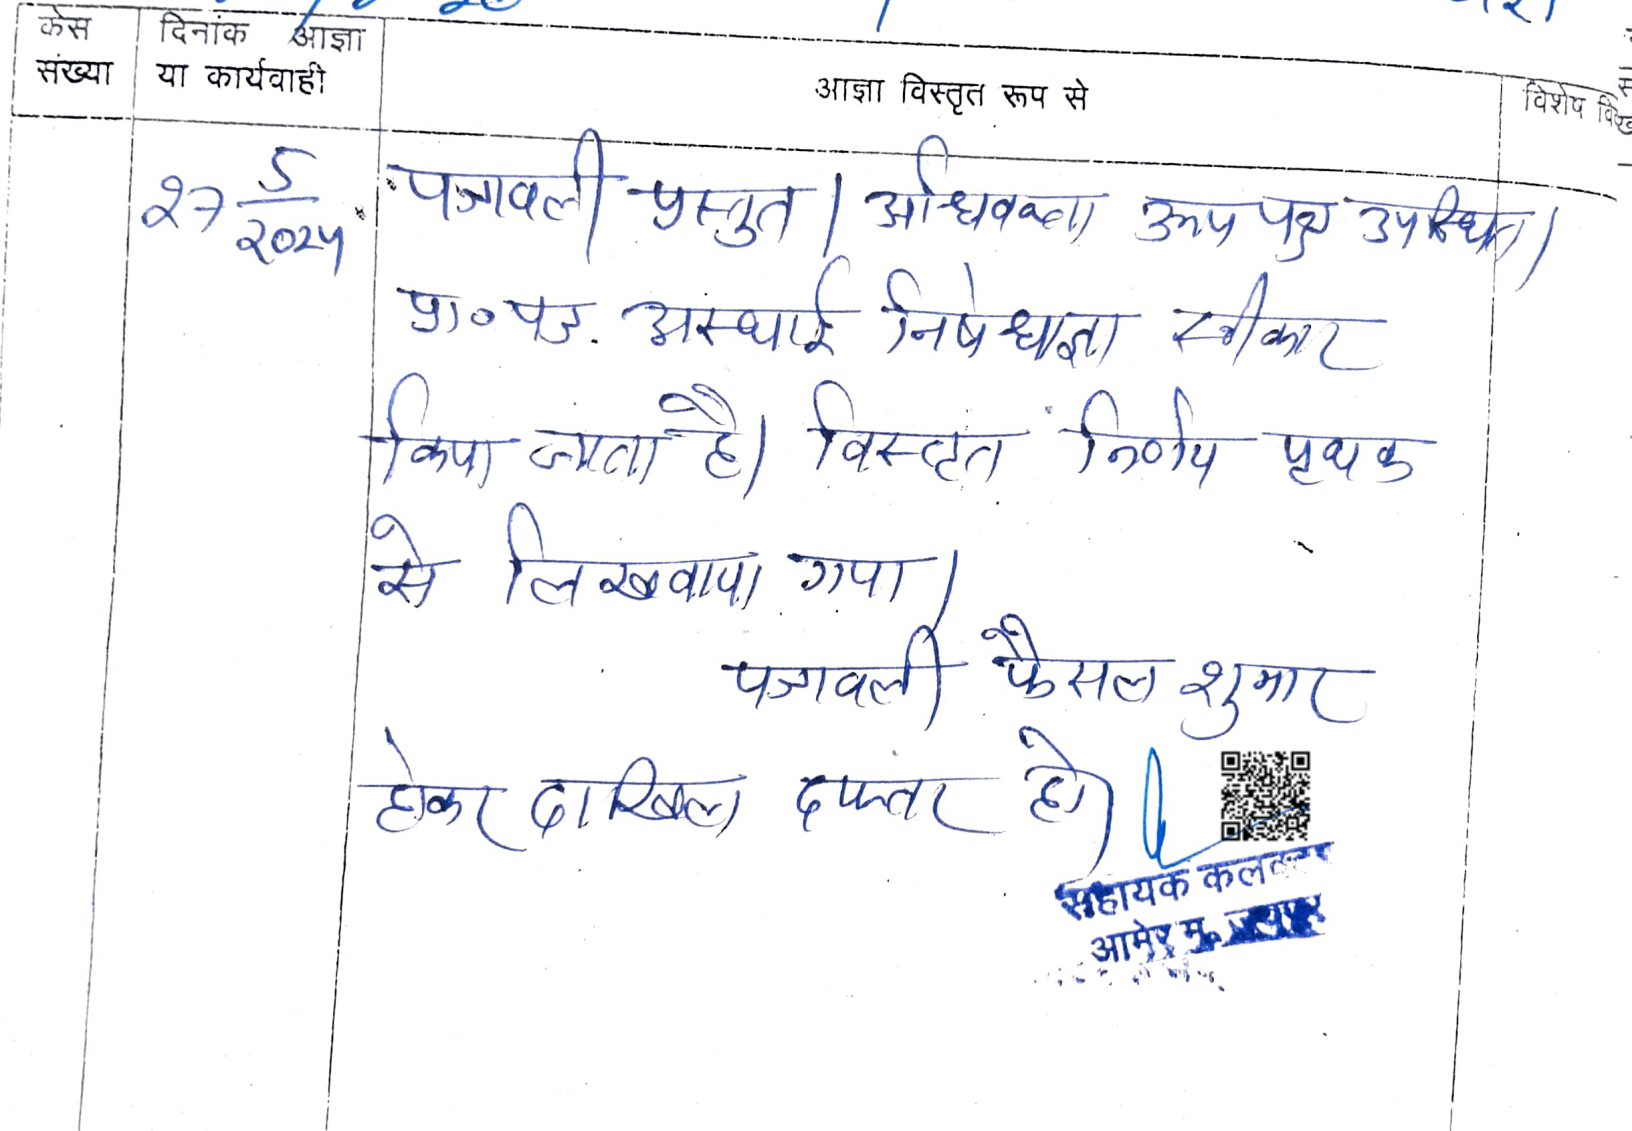 केस संख्या
दिनांक आज्ञा या कार्यवाही
आज्ञा विस्तृत रूप से
विशेष
27 5/2025
पत्रावली प्रस्तुत। अधिवक्ता उभय पक्ष उपस्थित।
प्रा० पत्र. अस्थाई निषेधाज्ञा स्वीकार
किया जाता है। विस्तृत निर्णय पृथक
से लिखवाया गया।
पत्रावली फैसल शुमार
होकर दाखिल दफ्तर हो।
सहायक कलक्टर
आमेर मु. जयपुर